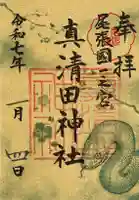 奉拝
尾張國一之宮
真清田神社
令和七年
一月四日